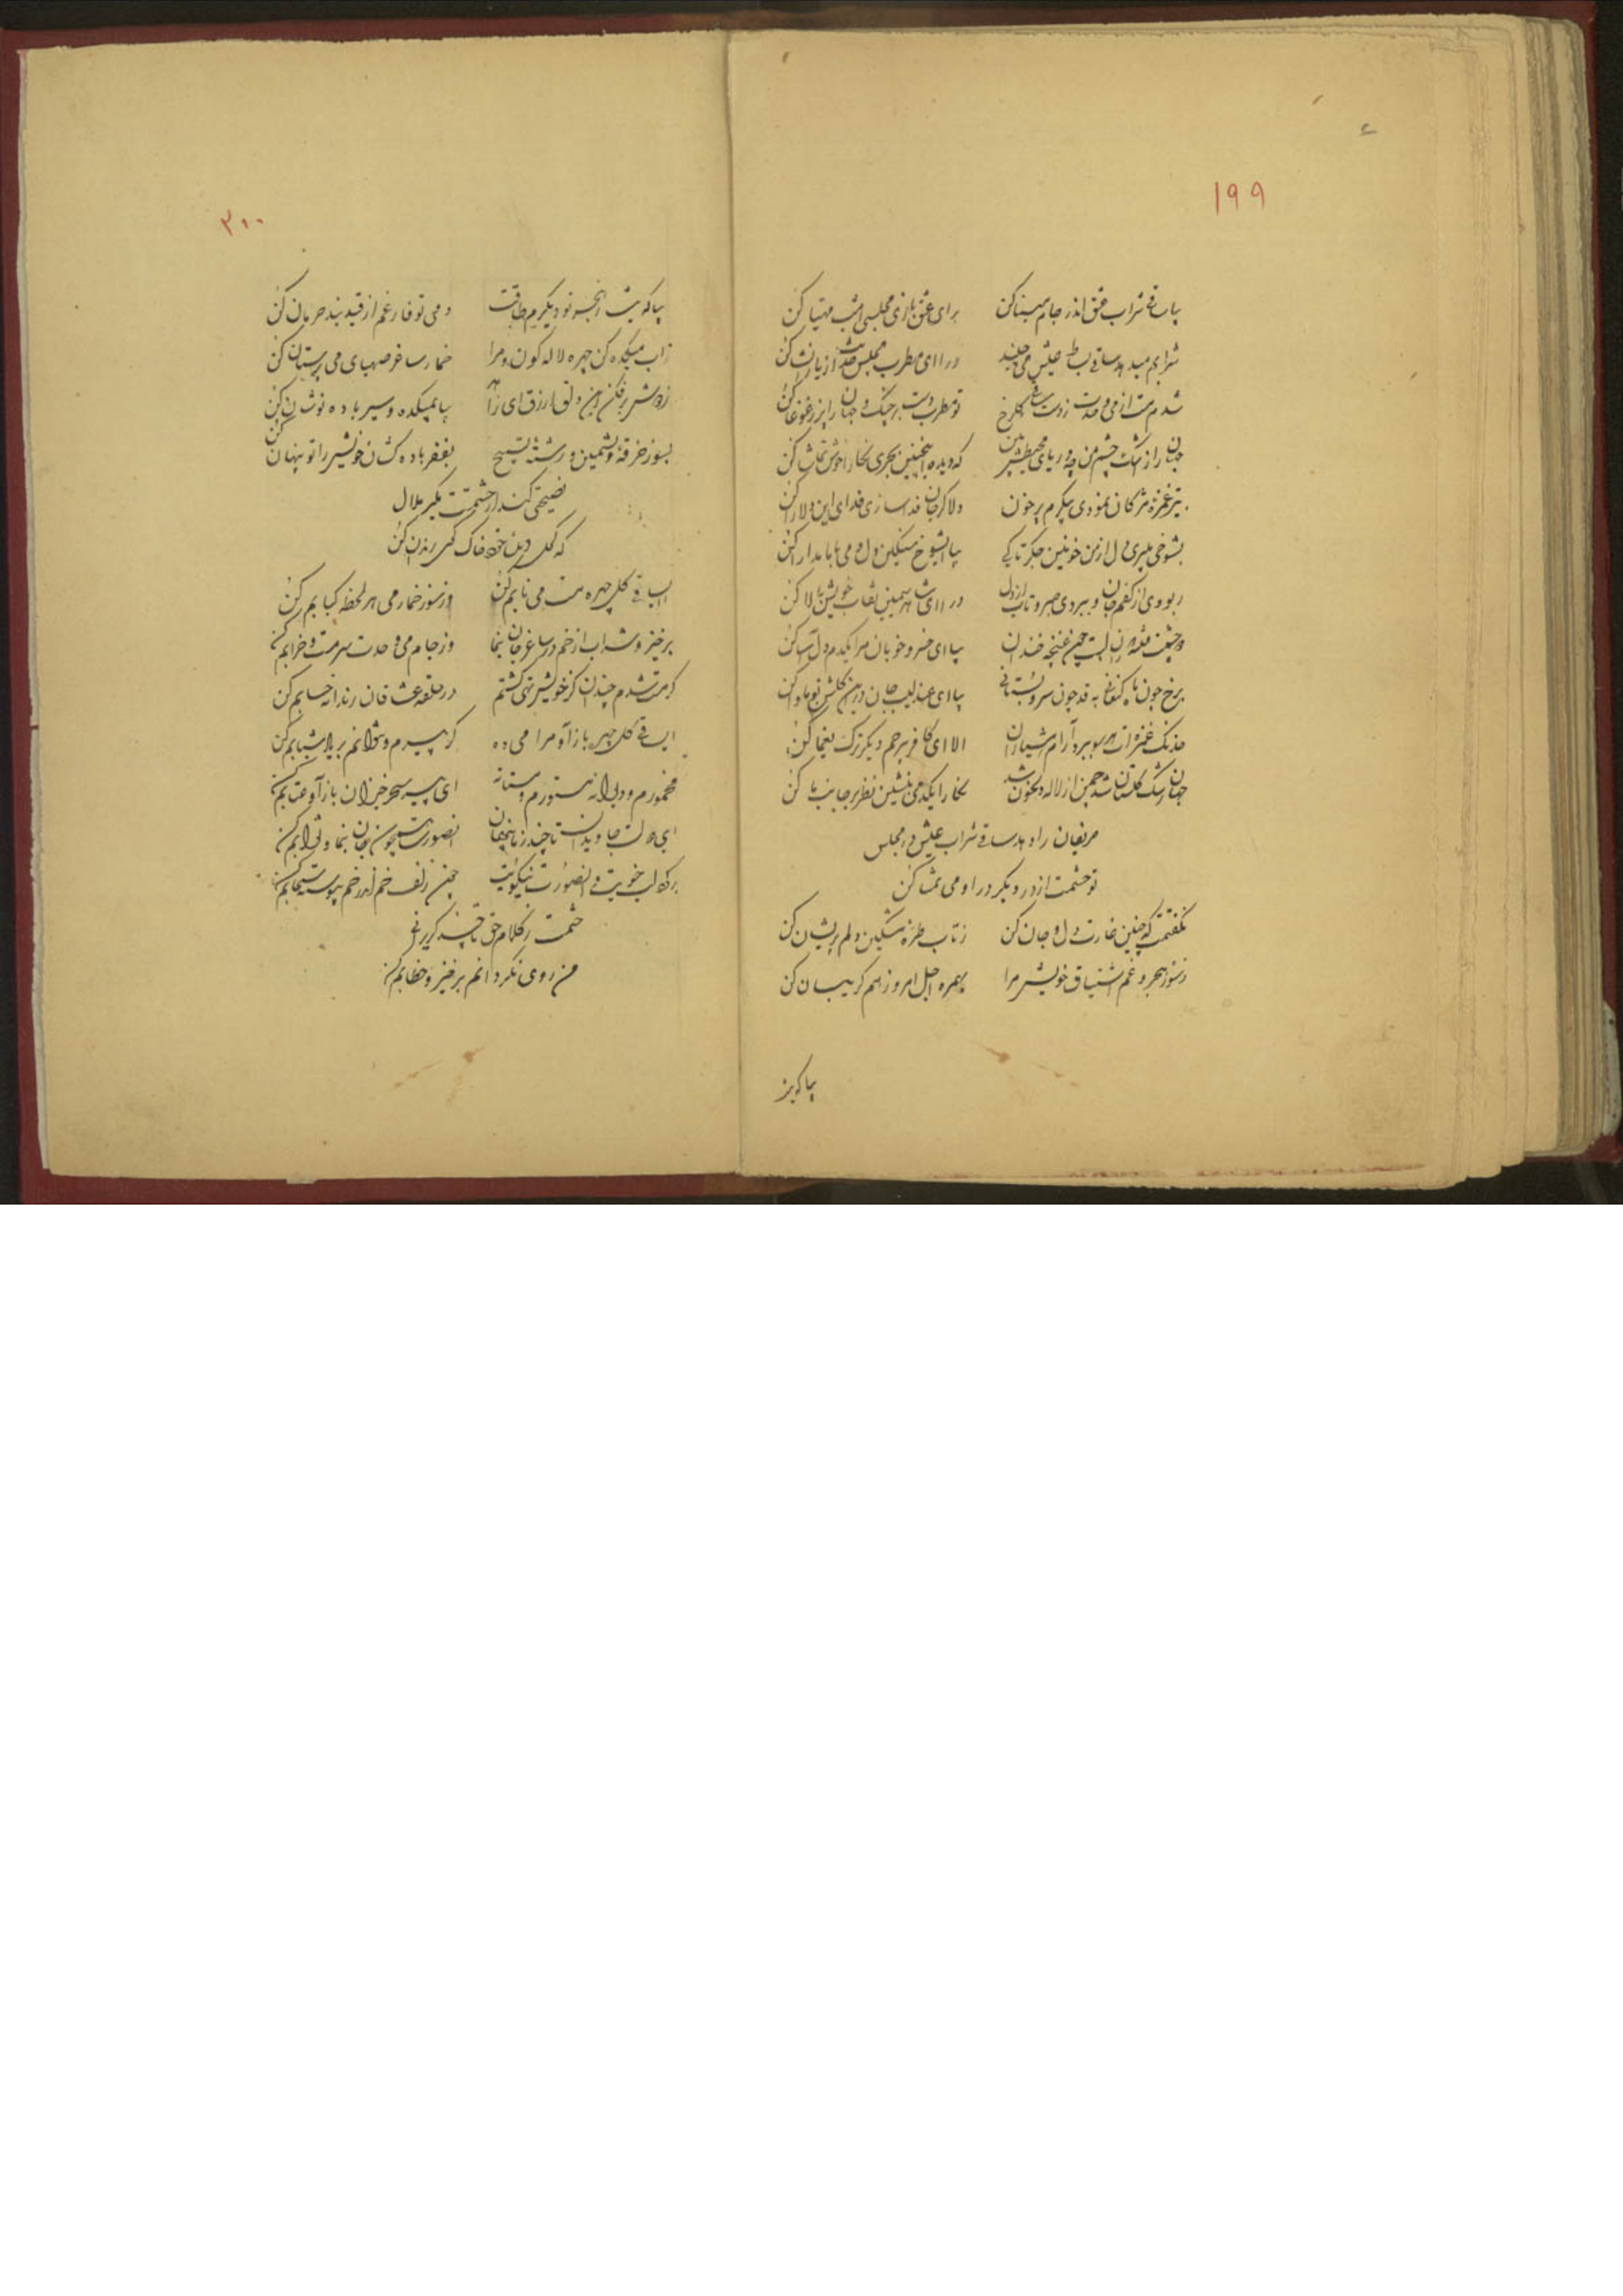 ۱۹۹
بیا ساقی شراب عشق اندر جام مینا کن برای عشق بازی مجلسی امشب مهیا کن
شرابم میدهد ساقی بساط عیش می چیند درا ای مطرب مجلس حدیث از یار ما کن
شدم مست از می وحدت ز دست ساقی گلرخ تو مطرب دست بر چنگ و جهان را پر ز غوغا کن
جهان را ز اشک چشم من چو دریای محیطش بین که دیده اینچنین بحری نگارا خوش تماشا کن
به تیر غمزه مژگان نمودی پیکرم پر خون دلا گر جان فدا سازی فدای این دلارا کن
بشوخی میبری دل از من خونین جگر تا کی بیا ای شوخ سنگین دل دمی با ما مدارا کن
ربودی از کفم جان و ببردی صبر و تاب از دل درا ای شاهد سیمین نقاب خویش بالا کن
دو چشمت فتنه دوران لبت چون غنچه خندان بیا ای خسرو خوبان مرا یکدم دل آسا کن
برخ چون ماه کنعانی به قد چون سرو بستانی بیا ای عندلیب جان درین گلشن تو ماوا کن
خدنگ غمزه ات هر سو ببرد آرام هشیاران الا ای کافر بیرحم دیگر ترک یغما کن
جهان رشک گلستان شد چمن از لاله دلخون شد نگارا یکدمی بنشین نظر بر جانب ما کن
حریفان را دهد ساقی شراب عیش در مجلس
تو حشمت از در دیگر درا و می تمنا کن
نگفتمت که چنین غارت دل و جان کن ز تاب طره مشکین دلم پریشان کن
ز سوز هجر و غم اشتیاق خویش مرا بهمره اجل امروز هم گریبان کن
بیا که بیش
۲۰۰
بیا که بیش از هجر تو دیگرم طاقت دمی تو فارغم از قید بند حرمان کن
ز آب میکده کن چهره لاله گون و مرا خمار ساغر صهبای می پرستان کن
ز دوش بر فکن این دلق ارزق ای زاهد بیا بمیکده و سیر باده نوشان کن
بسوز خرقه پشمین و رشته تسبیح بفقر باده کشان خویش را تو پنهان کن
نصیحتی کند ار حشمتت مگیر ملال
که کحل دیده خود خاک کوی رندان کن
ای ساقی گل چهره مست می نابم کن وز سوز خمار می هر لحظه کبابم کن
برخیز و شراب از خم در ساغر جان بنما وز جام می وحدت سرمست و خرابم کن
گر مست شدم چندان کز خویش تهی گشتم در حلقه عشاقان رندانه حسابم کن
ای ساقی گل چهره باز آ و مرا می ده گر پیرم و نتوانم بر یاد شبابم کن
مخمورم و دیوانه مستورم و مستانه ای پیر سحر خیزان باز آ و عتابم کن
حشمت ز کلام حق تا چند گریزی
من روی نگردانم برخیز و خطابم کن